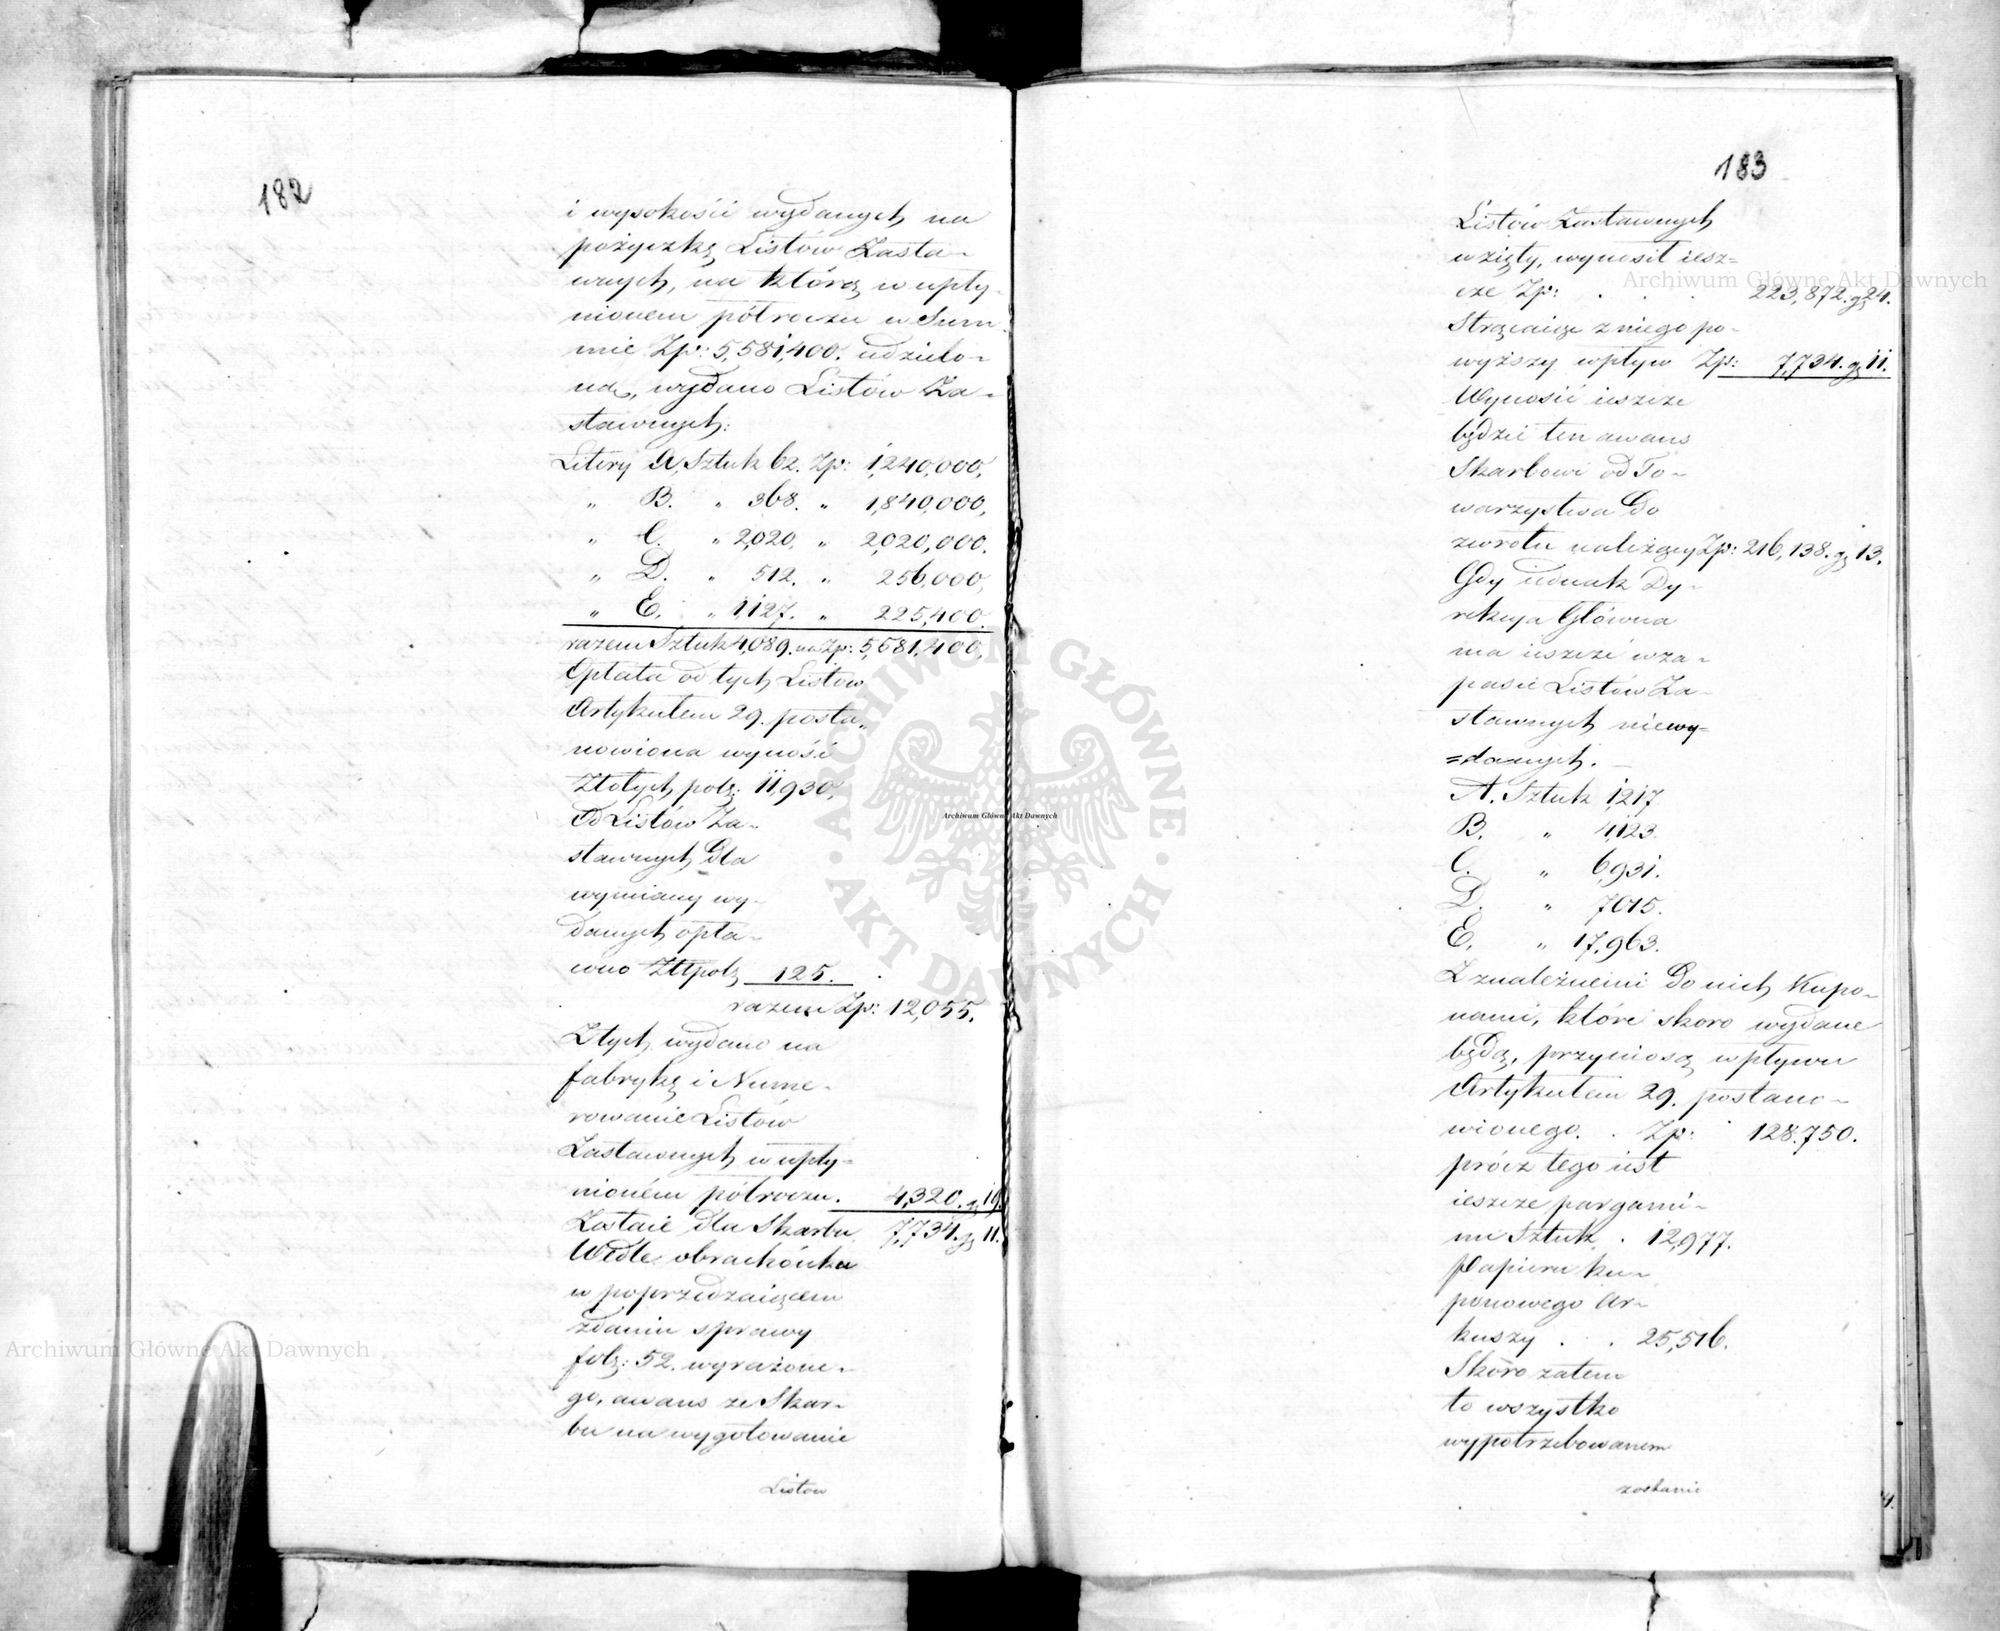 182
i wysokości wydanych na
pożyczkę Listów Zasta-
wnych, na którą w upły-
nionem półroczu w Sum-
mie Zp: 5,581,400. udzielo-
ną, wydano Listów Za-
stawnych:
Litery A, Sztuk 62. Zp: 1,240,000,
„ B. „ 368. „ 1,840,000,
„ C. „ 2,020, „ 2,020,000.
„ D. „ 512. „ 256,000,
„ E. „ 1,127. „ 225,400.
razem Sztuk 4,089. na Zp: 5,581,400,
Opłata od tych Listów
Artykułem 29. posta„
nowiona wynosi
Złotych polg: 11,930,
Od Listów Za-
stawnych dla
wymiany wy-
danych opła-
cono Złtpolg 125.
razem Zp: 12,055.
Z tych wydano na
fabrykę i Nume-
rowanie Listów
Zastawnych w upły-
nioném półroczu. 4,320. g 19.
Zostaie dla Skarbu 7,734. g 11.
Wedle obrachónku
w poprzedzaiącem
zdaniu sprawy
folg: 52. wyrażone-
go, awans ze Skar-
bu na wygotowanie
Listów
183
Listów Zastawnych
wzięty, wynosił iesz=
cze Zp: . . . 223,872. g 24.
Strącaiąc z niego po-
wyższy wpływ Zp: 7,734. g 11.
Wynosić ieszcze
będzie ten awans
Skarbowi od To-
warzystwa do
zwrotu należący Zp: 216,138. g 13.
Gdy iednak Dy-
rekcya Główna
ma ieszcze w za-
pasie Listów Za-
stawnych niewy=
=danych. —
A. Sztuk 1217
B. „ 4,123.
C. „ 6,931.
D. „ 7015.
E. „ 17,963.
Z należnemi do nich Kupo-
nami, które skoro wydane
będą, przyniosą wpływu
Artykułem 29. postano-
wionego. . Zp: 128.750.
prócz tego iest
ieszcze pargami-
nu Sztuk . 12,977.
Papieru ku-
ponowego Ar-
kuszy . . 25,516.
Skoro zatem
to wszystko
wypotrzebowanem
zostanie
Archiwum Główne Akt Dawnych
Archiwum Główne Akt Dawnych
Archiwum Główne Akt Dawnych
ARCHIWUM GŁÓWNE
AKT DAWNYCH